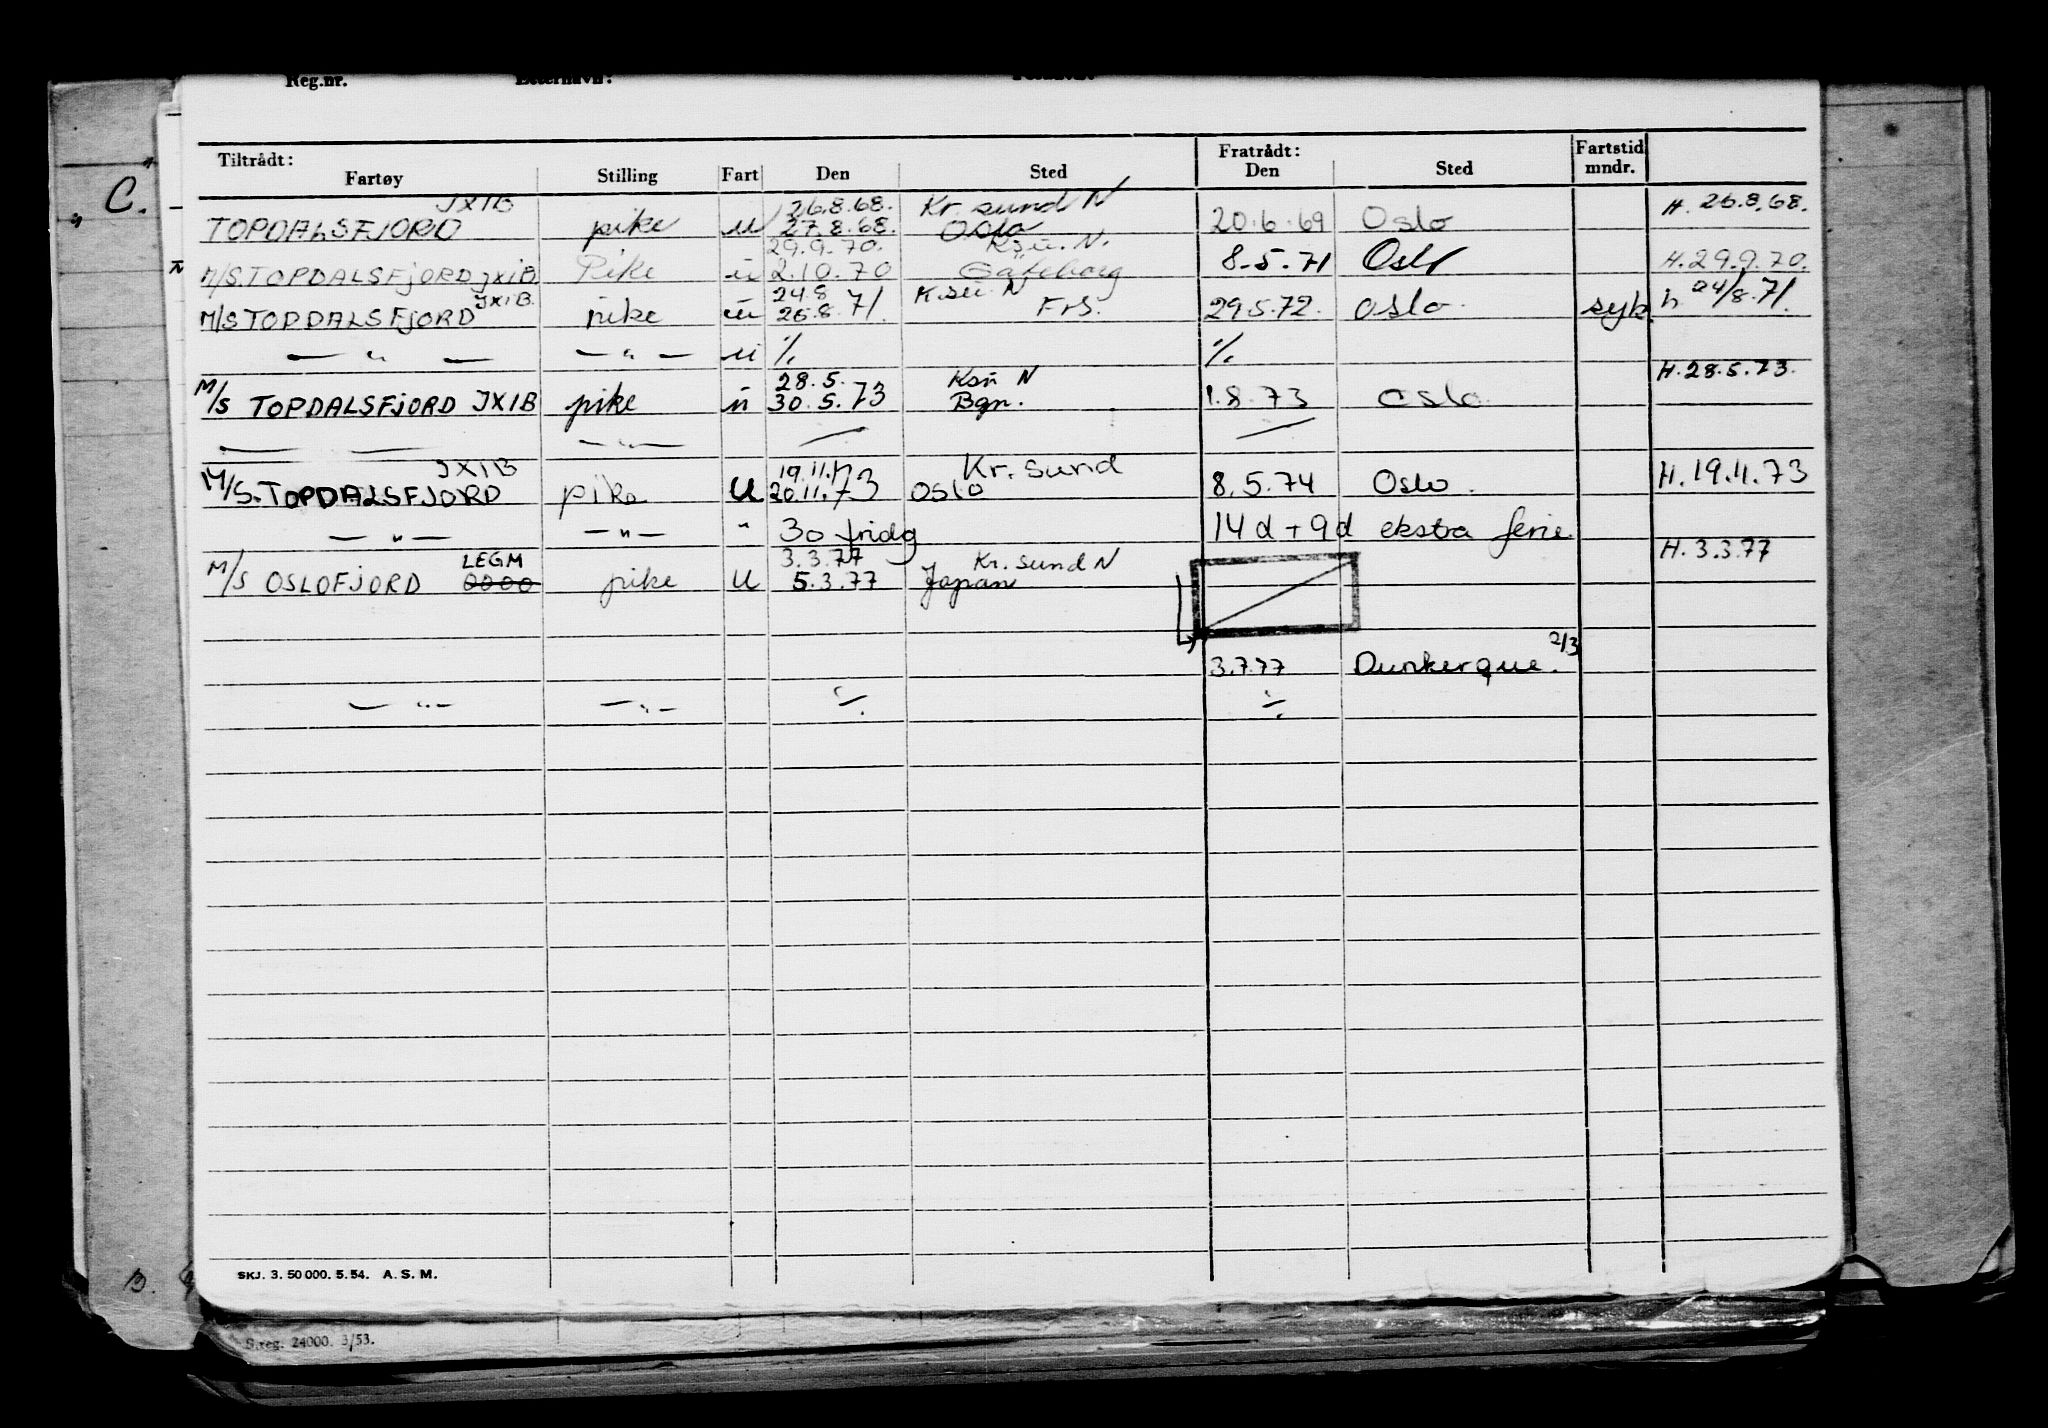 Reg.nr. Etternavn: Fornavn:
Tiltrådt: Fratrådt: Fartstid
Fartøy Stilling Fart Den Sted Den Sted mndr.
C.
JXIB 26.8.68. Kr. sund N H. 26.8.68.
TOPDALSFJORD pike u 27.8.68. Oslo 20.6.69 Oslo
29.9.70. Ksu. N.
M/S TOPDALSFJORD JXIB. Pike u 2.10.70 Gøteborg 8.5.71 Oslo H. 29.9.70.
JXIB 24.8 K.su. N
M/S TOPDALSFJORD pike u 26.8.71. Frs. 29.5.72. Oslo. syk. h. 24/8.71.
— " — — " — u % %
28.5. Ksu N H. 28.5.73.
M/S TOPDALSFJORD JXIB pike u 30.5.73 Bgn. 1.8.73 Oslo
— — — " —
JXIB 19.11.73 Kr. Sund
M/S. TOPDALSFJORD pike U 20.11.73 Oslo 8.5.74 Oslo. H. 19.11.73
— " — — " — " 30 fridg 14 d + 9 d ekstra ferie
LEGM 3.3.77 Kr. Sund N H. 3.3.77
M/S OSLOFJORD pike U 5.3.77 Japan
3.7.77 Dunkerque. 2/3
— " — — " — ÷ ÷
SKJ. 3. 50 000. 5. 54. A. S. M.
B.
S.reg. 24000. 3/53.